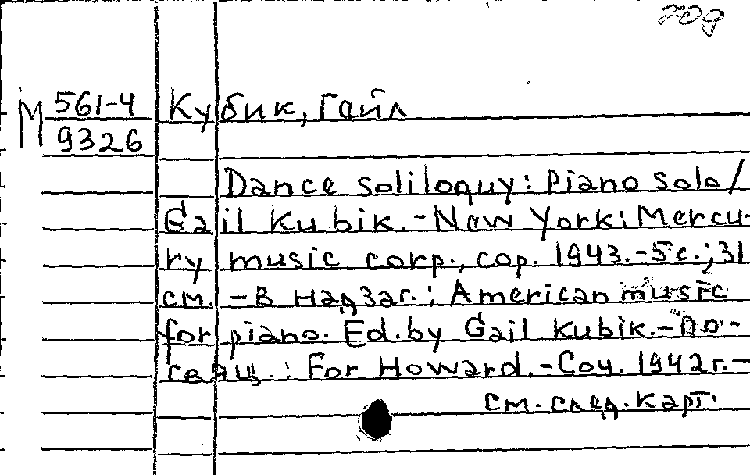 М 561-4
9326
Кубик, Гайл
Dance soliloquy: Piano solo/
Gail Kubik.-New York: Mercu-
ry music corp., cop. 1943.-5с.; 31
см. - В надзаг.: American music
for piano. Ed. by Gail Kubik.-По-
свящ.: For Howard.-Соч. 1942г.-
см. след. карт.